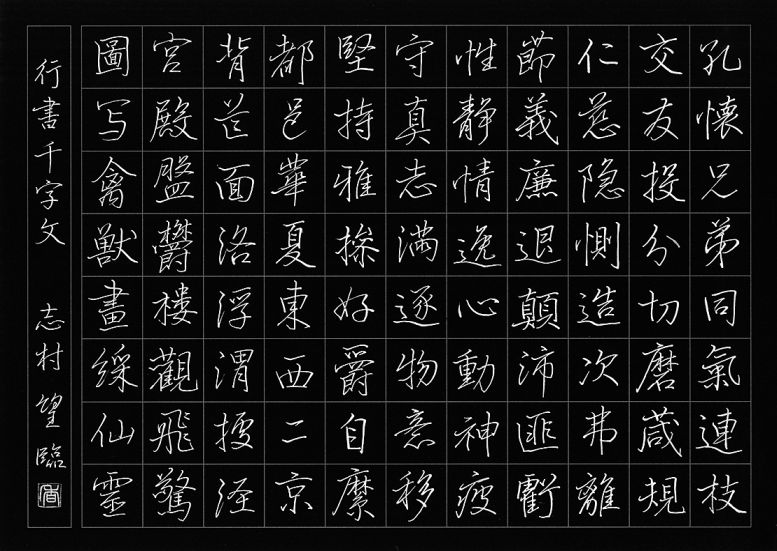 孔懐兄弟同氣連枝
交友投分切磨葴規
仁慈隐惻造次弗離
節義廉退顛沛匪虧
性静情逸心動神疲
守真志満逐物意移
堅持雅操好爵自縻
都邑華夏東西二京
背芒面洛浮渭據涇
宮殿盤欝楼觀飛驚
圖写禽獣畫綵仙靈
行書千字文 志村望臨